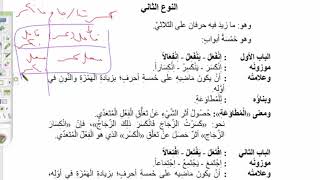 النوع الثاني
وهو: ما زيد فيه حرفان على الثلاثيِّ
وهو خَمْسَةُ أبوابٍ:
الباب الأول : اِنْفَعَلَ - يَنْفَعِلُ - اِنْفِعَالًا
موزونه : اِنْكَسَرَ - يَنْكَسِرُ - اِنْكِسَارًا.
وعلامته : أَنْ يكون مَاضِيهِ على خَمسةِ أحرفٍ؛ بزيادة الهَمْزَةِ والنُّون في أَوَّلِه.
وبناؤه : للمُطَاوَعَةِ.
ومعنى «المُطَاوَعَةِ»: حصولُ أَثَرِ الشَّيْءِ عَنْ تَعَلُّقِ الفِعْلِ المُتَعَدِّي.
نحو: «كَسَرْتُ الزُّجَاجَ فَانْكَسَرَ ذلك الزُّجَاجُ»، فَإِنَّ «انْكِسَارَ
الزُّجَاجِ» أَثَرٌ حَصَلَ عَنْ تَعَلُّقِ «الكَسْرِ» الذي هو الفِعْلُ المُتَعَدِّي.
الباب الثاني : اِفْتَعَلَ - يَفْتَعِلُ - اِفْتِعَالًا
موزونه : اِجْتَمَعَ - يَجْتَمِعُ - اِجْتِمَاعًا.
وعلامته : أَنْ يكون مَاضِيهِ على خَمسةِ أحرفٍ؛ بزيادة الهَمْزَةِ في أَوَّلِه،